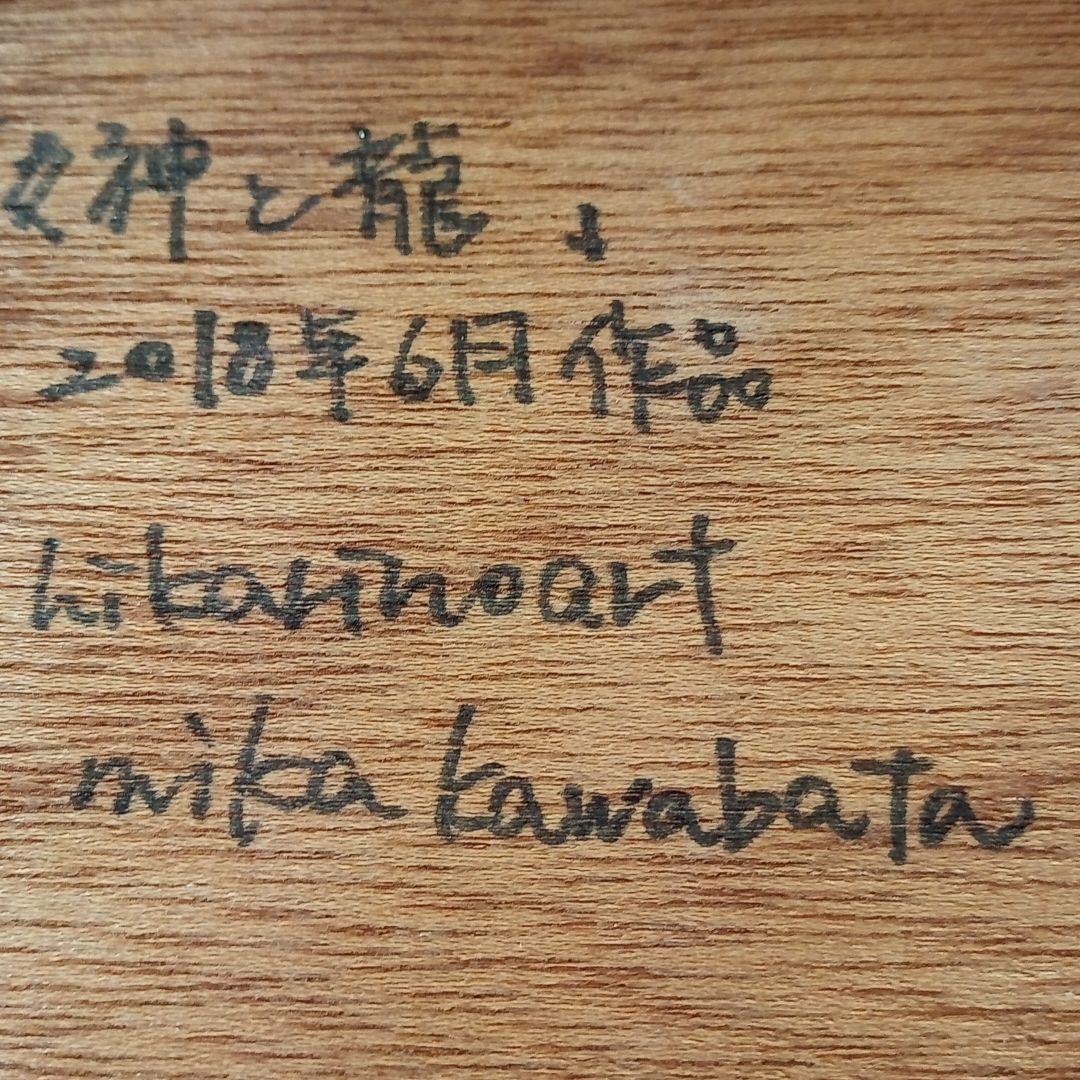 女神と龍」
2018年6月作品
hikarinoart
mika kawabata